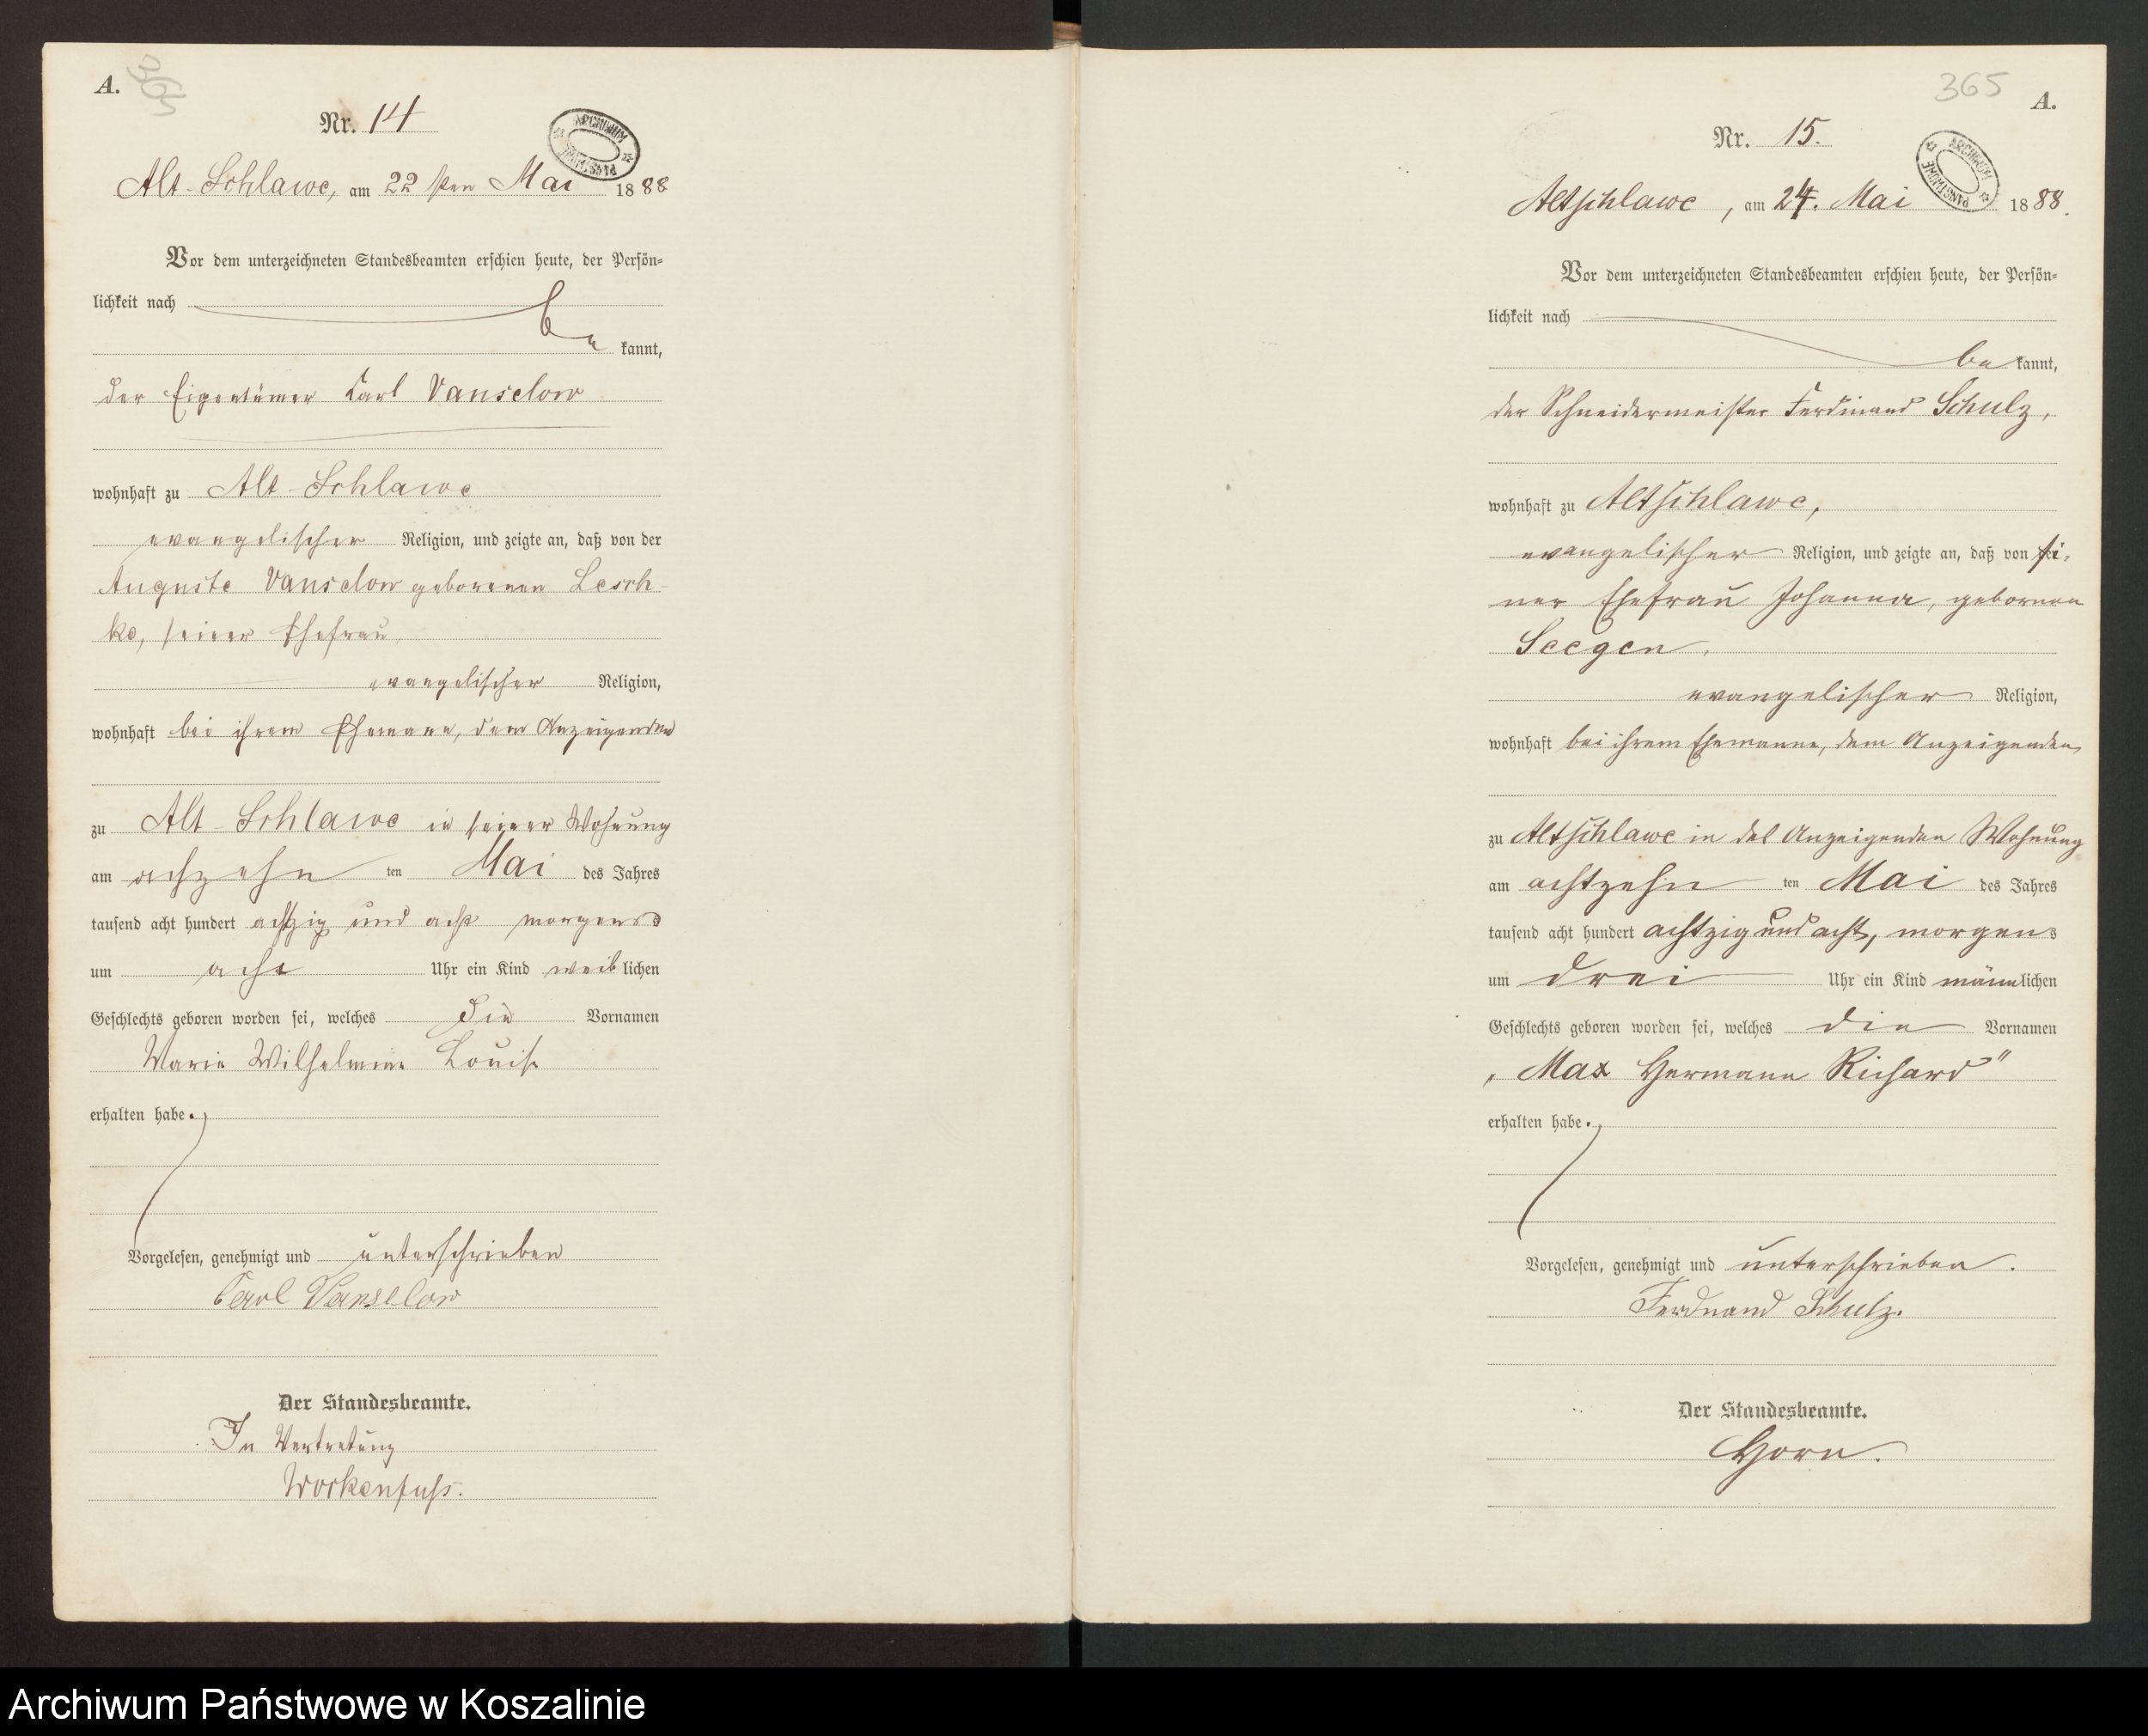 A.
365
Nr. 14
ARCHIWUM PAŃSTWOWE
Alt-Schlawe, am 22 sten Mai 1888
Vor dem unterzeichneten Standesbeamten erschien heute, der Persön-
lichkeit nach
be kannt,
der Eigentümer Carl Vanselow
wohnhaft zu Alt-Schlawe
evangelischer Religion, und zeigte an, daß von der
Auguste Vanselow geborenen Lesch-
ke, seiner Ehefrau,
evangelischer Religion,
wohnhaft bei ihrem Ehemann, dem Anzeigenden
zu Alt-Schlawe in seiner Wohnung
am achzehn ten Mai des Jahres
tausend acht hundert achtzig und acht morgens
um acht Uhr ein Kind weiblichen
Geschlechts geboren worden sei, welches die Vornamen
Marie Wilhelmine Louise
erhalten habe.
Vorgelesen, genehmigt und unterschrieben
Carl Vanselow
Der Standesbeamte.
In Vertretung
Workenfuhs.
365
A.
Nr. 15.
ARCHIWUM PAŃSTWOWE
Altschlawe, am 24. Mai 1888.
Vor dem unterzeichneten Standesbeamten erschien heute, der Persön-
lichkeit nach
be kannt,
der Schneidermeister Ferdinand Schulz,
wohnhaft zu Altschlawe,
evangelischer Religion, und zeigte an, daß von sei-
ner Ehefrau Johanna, gebornen
Seegen,
evangelischer Religion,
wohnhaft bei ihrem Ehemanne, dem Anzeigenden,
zu Altschlawe in des Anzeigenden Wohnung
am achtzehn ten Mai des Jahres
tausend acht hundert achtzig und acht, morgens
um drei Uhr ein Kind männlichen
Geschlechts geboren worden sei, welches die Vornamen
„Max Hermann Richard"
erhalten habe.
Vorgelesen, genehmigt und unterschrieben.
Ferdnand Schulz.
Der Standesbeamte.
Horn.
Archiwum Państwowe w Koszalinie